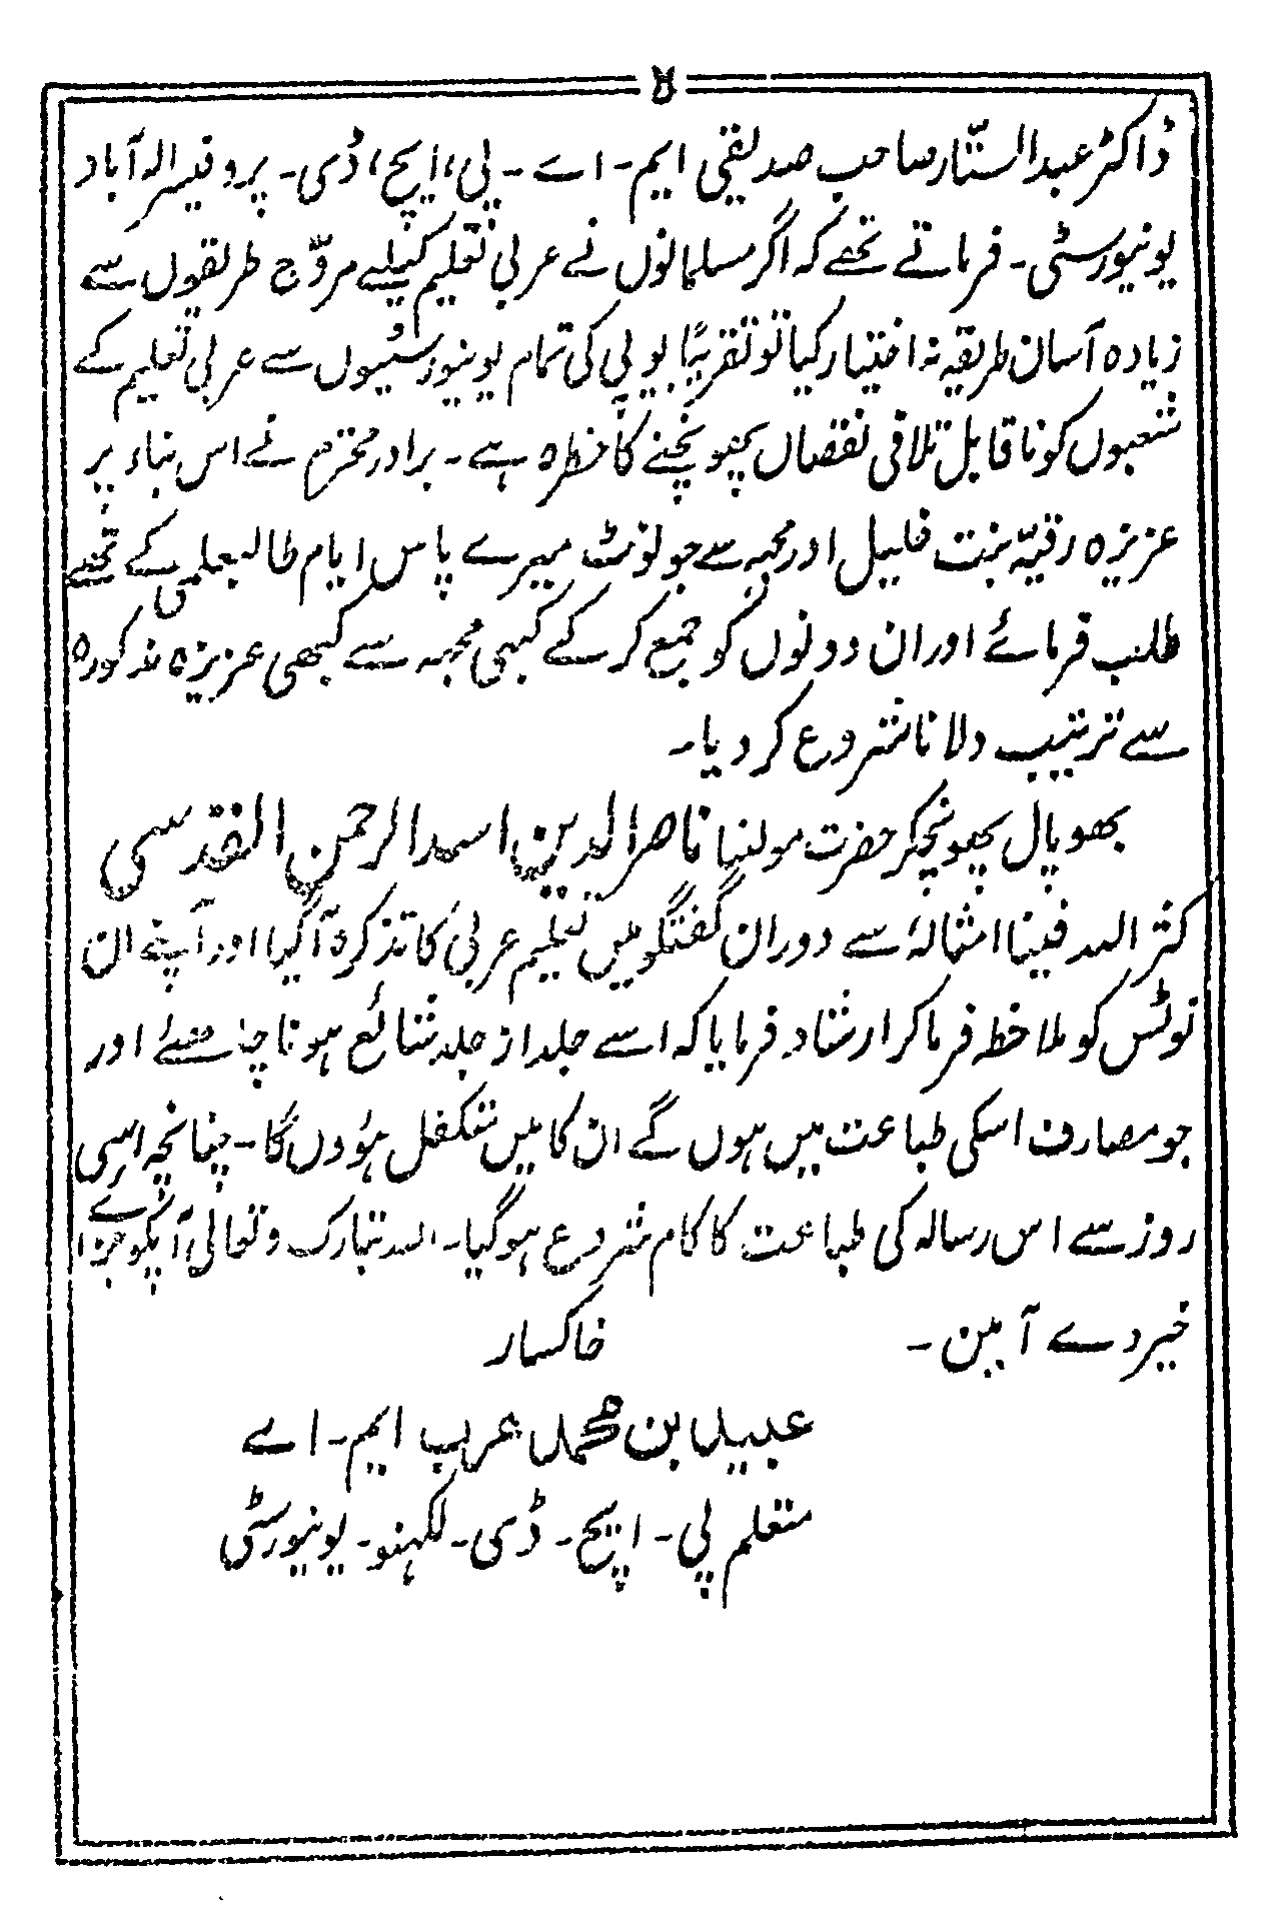 ۵
ڈاکٹر عبدالستّار صاحب صدیقی ایم۔ اے۔ پی، ایچ، ڈی۔ پروفیسر الہ آباد
یونیورسٹی۔ فرماتے تھے کہ اگر مسلمانوں نے عربی تعلیم کیلیے مروّج طریقوں سے
زیادہ آسان طریقہ نہ اختیار کیا تو تقریبًا یو پی کی تمام یونیورسٹیوں سے عربی تعلیم کے
شعبوں کو ناقابل تلافی نقصان پہونچنے کا خطرہ ہے۔ برادر محترم نے اس بناء پر
عزیزہ رقیّہ بنت خلیل اور مجھ سے جو نوٹ میرے پاس ایام طالبعلمی کے تھے
طلب فرمائے اور ان دونوں کو جمع کر کے کبہی مجہہ سے کبھی عزیزہ مذکورہ
سے ترتیب دلانا شروع کر دیا۔
بھوپال پہونچکر حضرت مولٰینا ناصر الدین اسد الرحمن القدسی
کثر اللہ فینا امثالہٗ سے دوران گفتگو میں تعلیم عربی کا تذکرہ آگیا اور آپنے ان
نوٹس کو ملاحظہ فرما کر ارشاد فرمایا کہ اسے جلد از جلد شائع ہونا چاہئے اور
جو مصارف اسکی طباعت میں ہوں گے ان کا میں متکفل ہوؤں گا۔ چنانچہ اسی
روز سے اس رسالہ کی طباعت کا کام شروع ہو گیا۔ اللہ تبارک و تعالٰی آپکو جزائے
خیر دے آمین۔ خاکسار
عبید بن محمد عرب ایم۔ اے
متعلم پی۔ ایچ۔ ڈی۔ لکہنو۔ یونیورسٹی